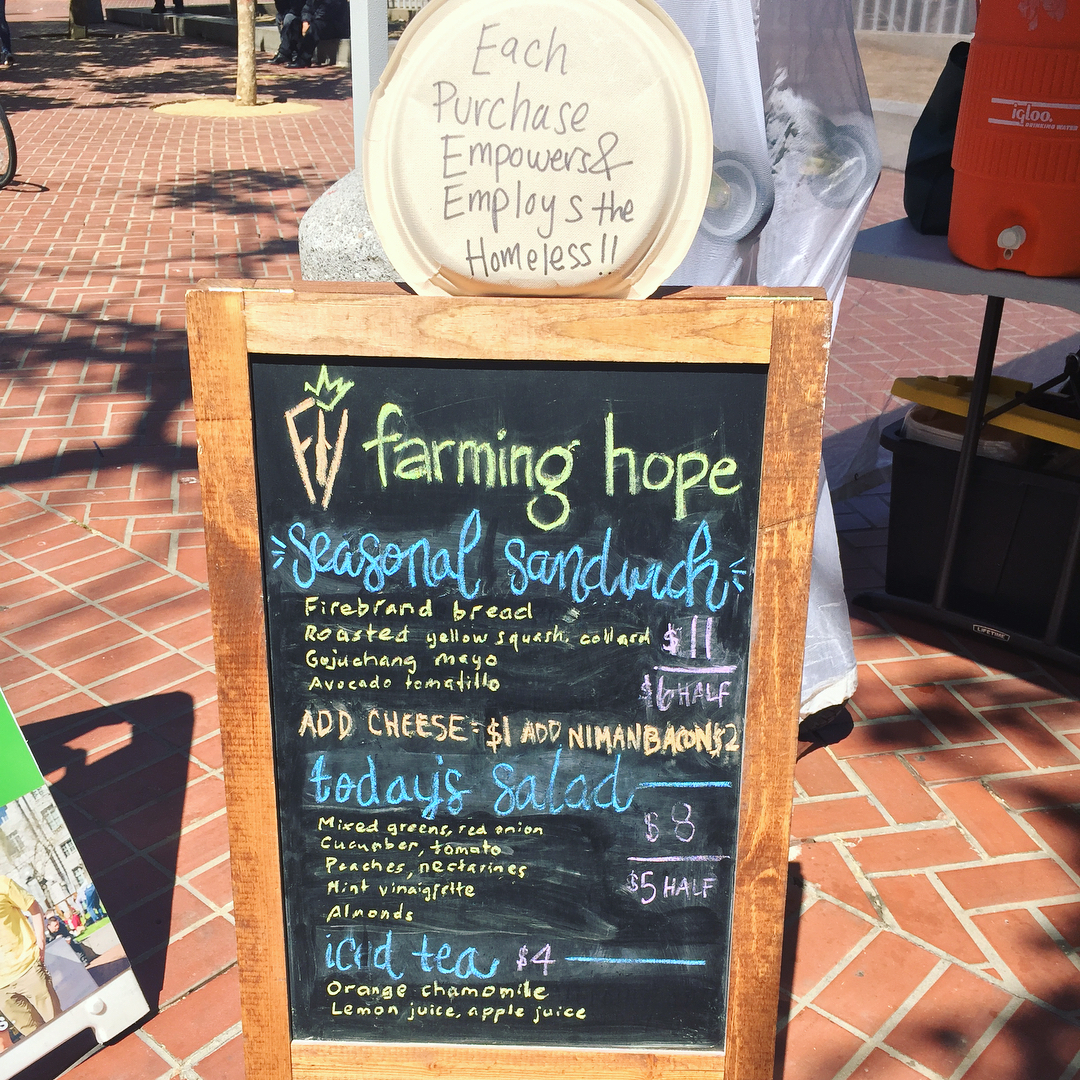 Each
Purchase
Empowers &
Employs the
Homeless!!
igloo.
DRINKING WATER
FH farming hope
seasonal sandwich
Firebrand bread
Roasted yellow squash, collard $11
Gojuchang mayo
Avocado tomatillo $6 HALF
ADD CHEESE - $1 ADD NIMAN BACON $2
today's salad
Mixed greens, red onion $8
Cucumber, tomato
Peaches, nectarines
Mint vinaigrette $5 HALF
Almonds
iced tea $4
Orange chamomile
Lemon juice, apple juice
LIFETIME